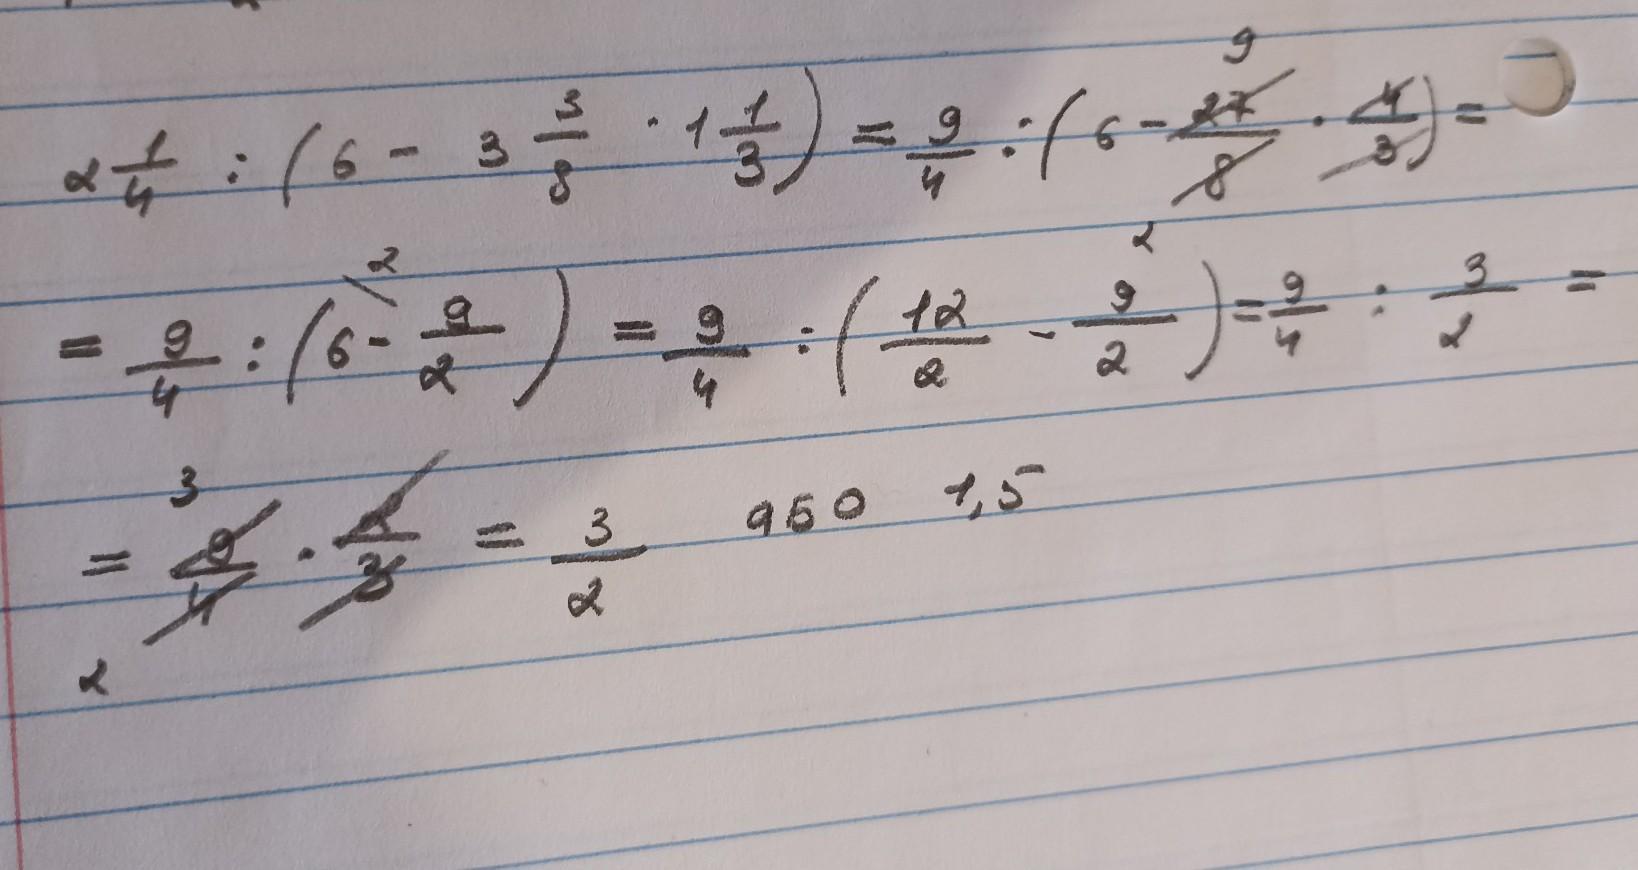 2 1/4 : (6 - 3 3/8 · 1 1/3) = 9/4 : (6 - 27/8 · 4/3) = 9 2
= 9/4 : (6 - 9/2) = 9/4 : (12/2 - 9/2) = 9/4 : 3/2 = 2
= 9/4 · 2/3 = 3/2 або 1,5 3 2